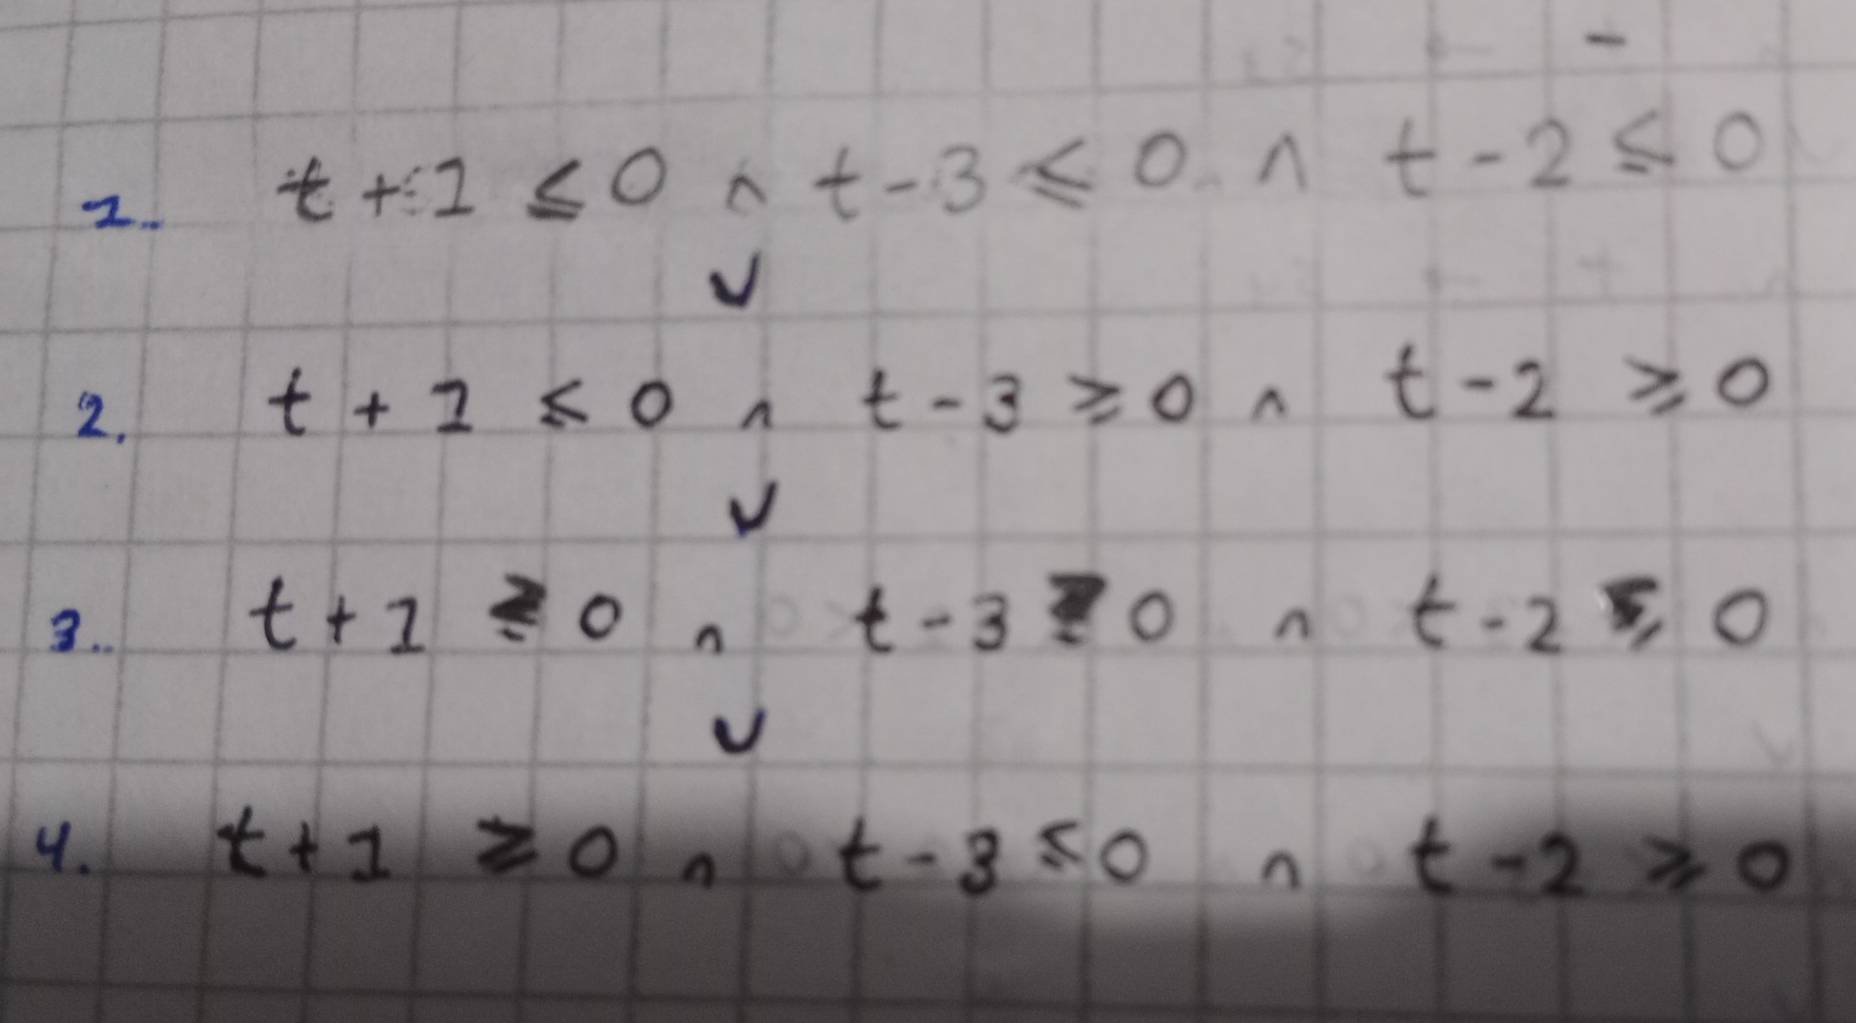 1. t + 1 ≤ 0 ∧ t - 3 ≤ 0 ∧ t - 2 ≤ 0
∨
2. t + 1 ≤ 0 ∧ t - 3 ≥ 0 ∧ t - 2 ≥ 0
∨
3. t + 1 ≥ 0 ∧ t - 3 ≥ 0 ∧ t - 2 ≤ 0
∨
4. t + 1 ≥ 0 ∧ t - 3 ≤ 0 ∧ t - 2 ≥ 0